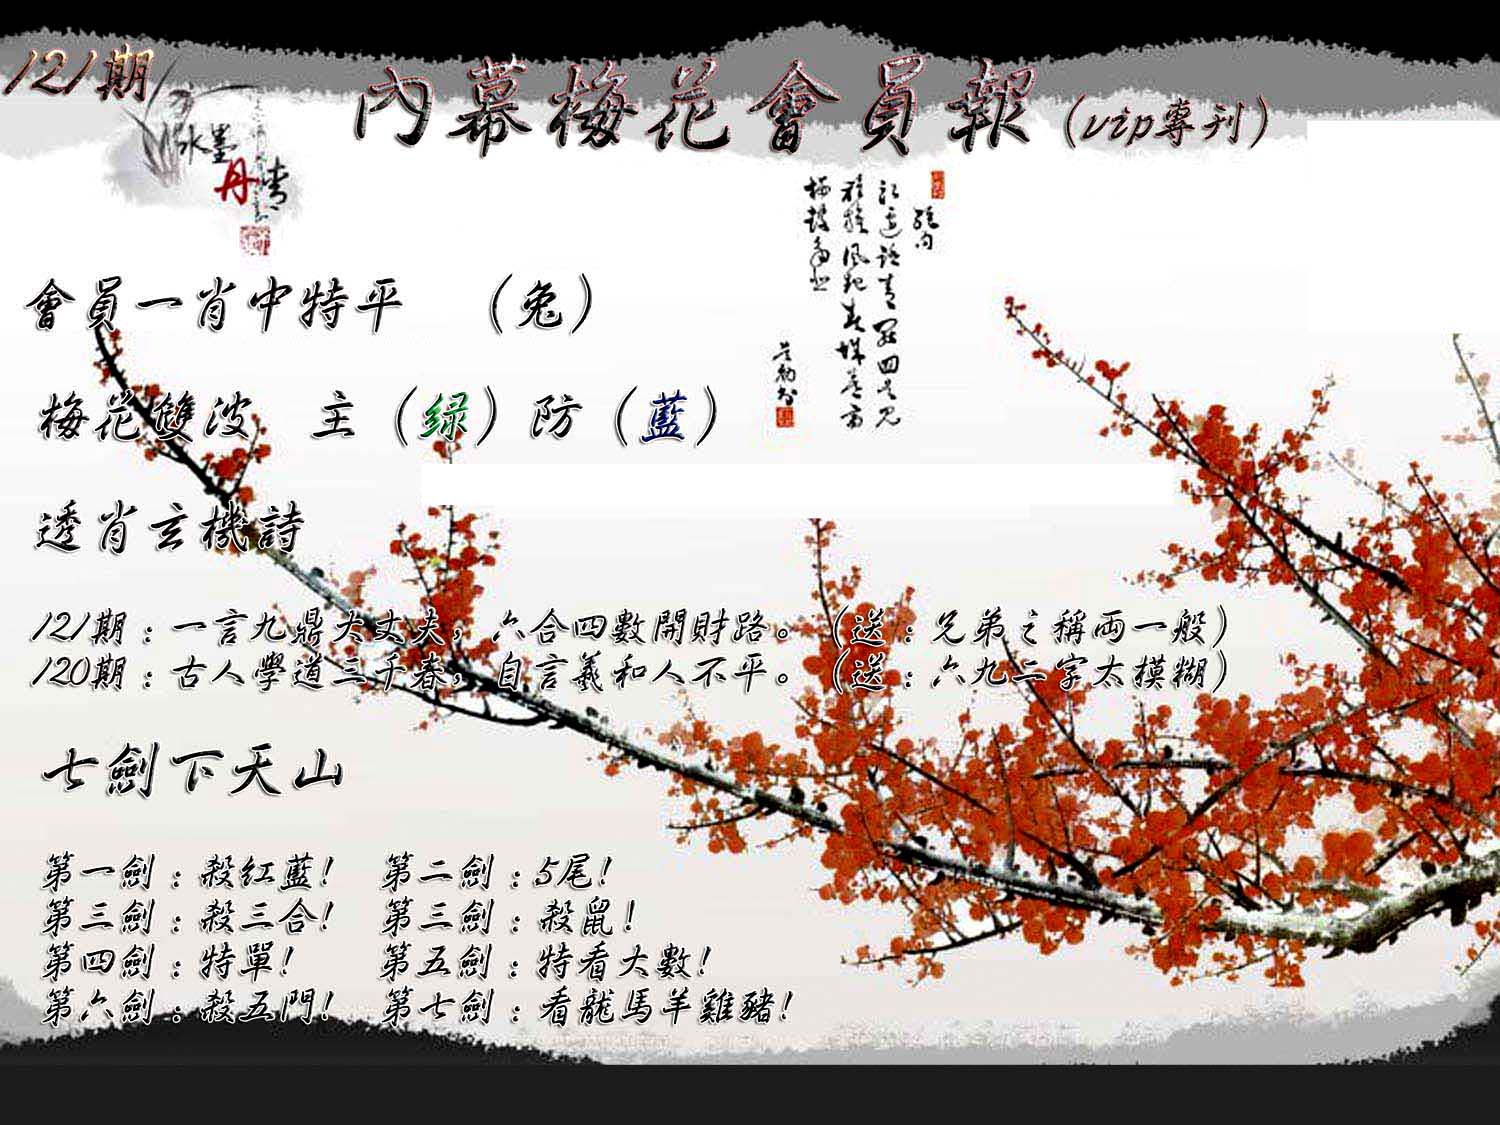 121期
內幕梅花會員報（vip專刊）
水墨
丹青
絕句
會員一肖中特平　（兔）
梅花雙波　主（绿）防（藍）
透肖玄機詩
121期：一言九鼎大丈夫，六合四數開財路。（送：兄弟之稱兩一般）
120期：古人學道三千春，自言羲和人不平。（送：六九二字太模糊）
七劍下天山
第一劍：殺红藍！　第二劍：5尾！
第三劍：殺三合！　第三劍：殺鼠！
第四劍：特單！　第五劍：特看大數！
第六劍：殺五門！　第七劍：看龍馬羊雞豬！